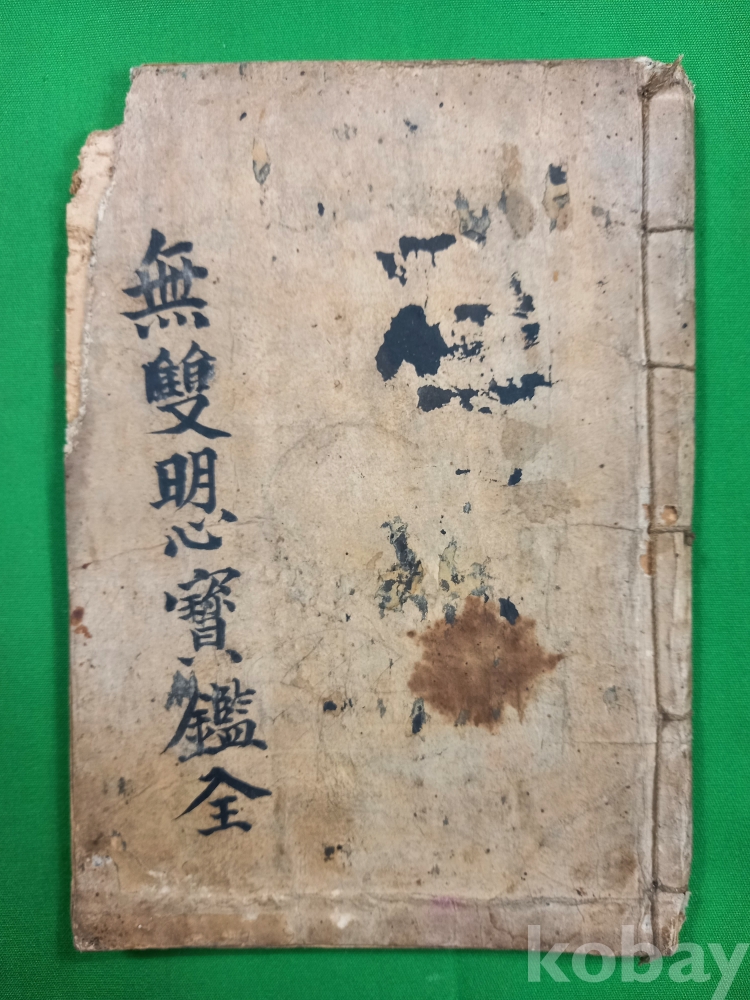 無雙明心寶鑑全
kobay